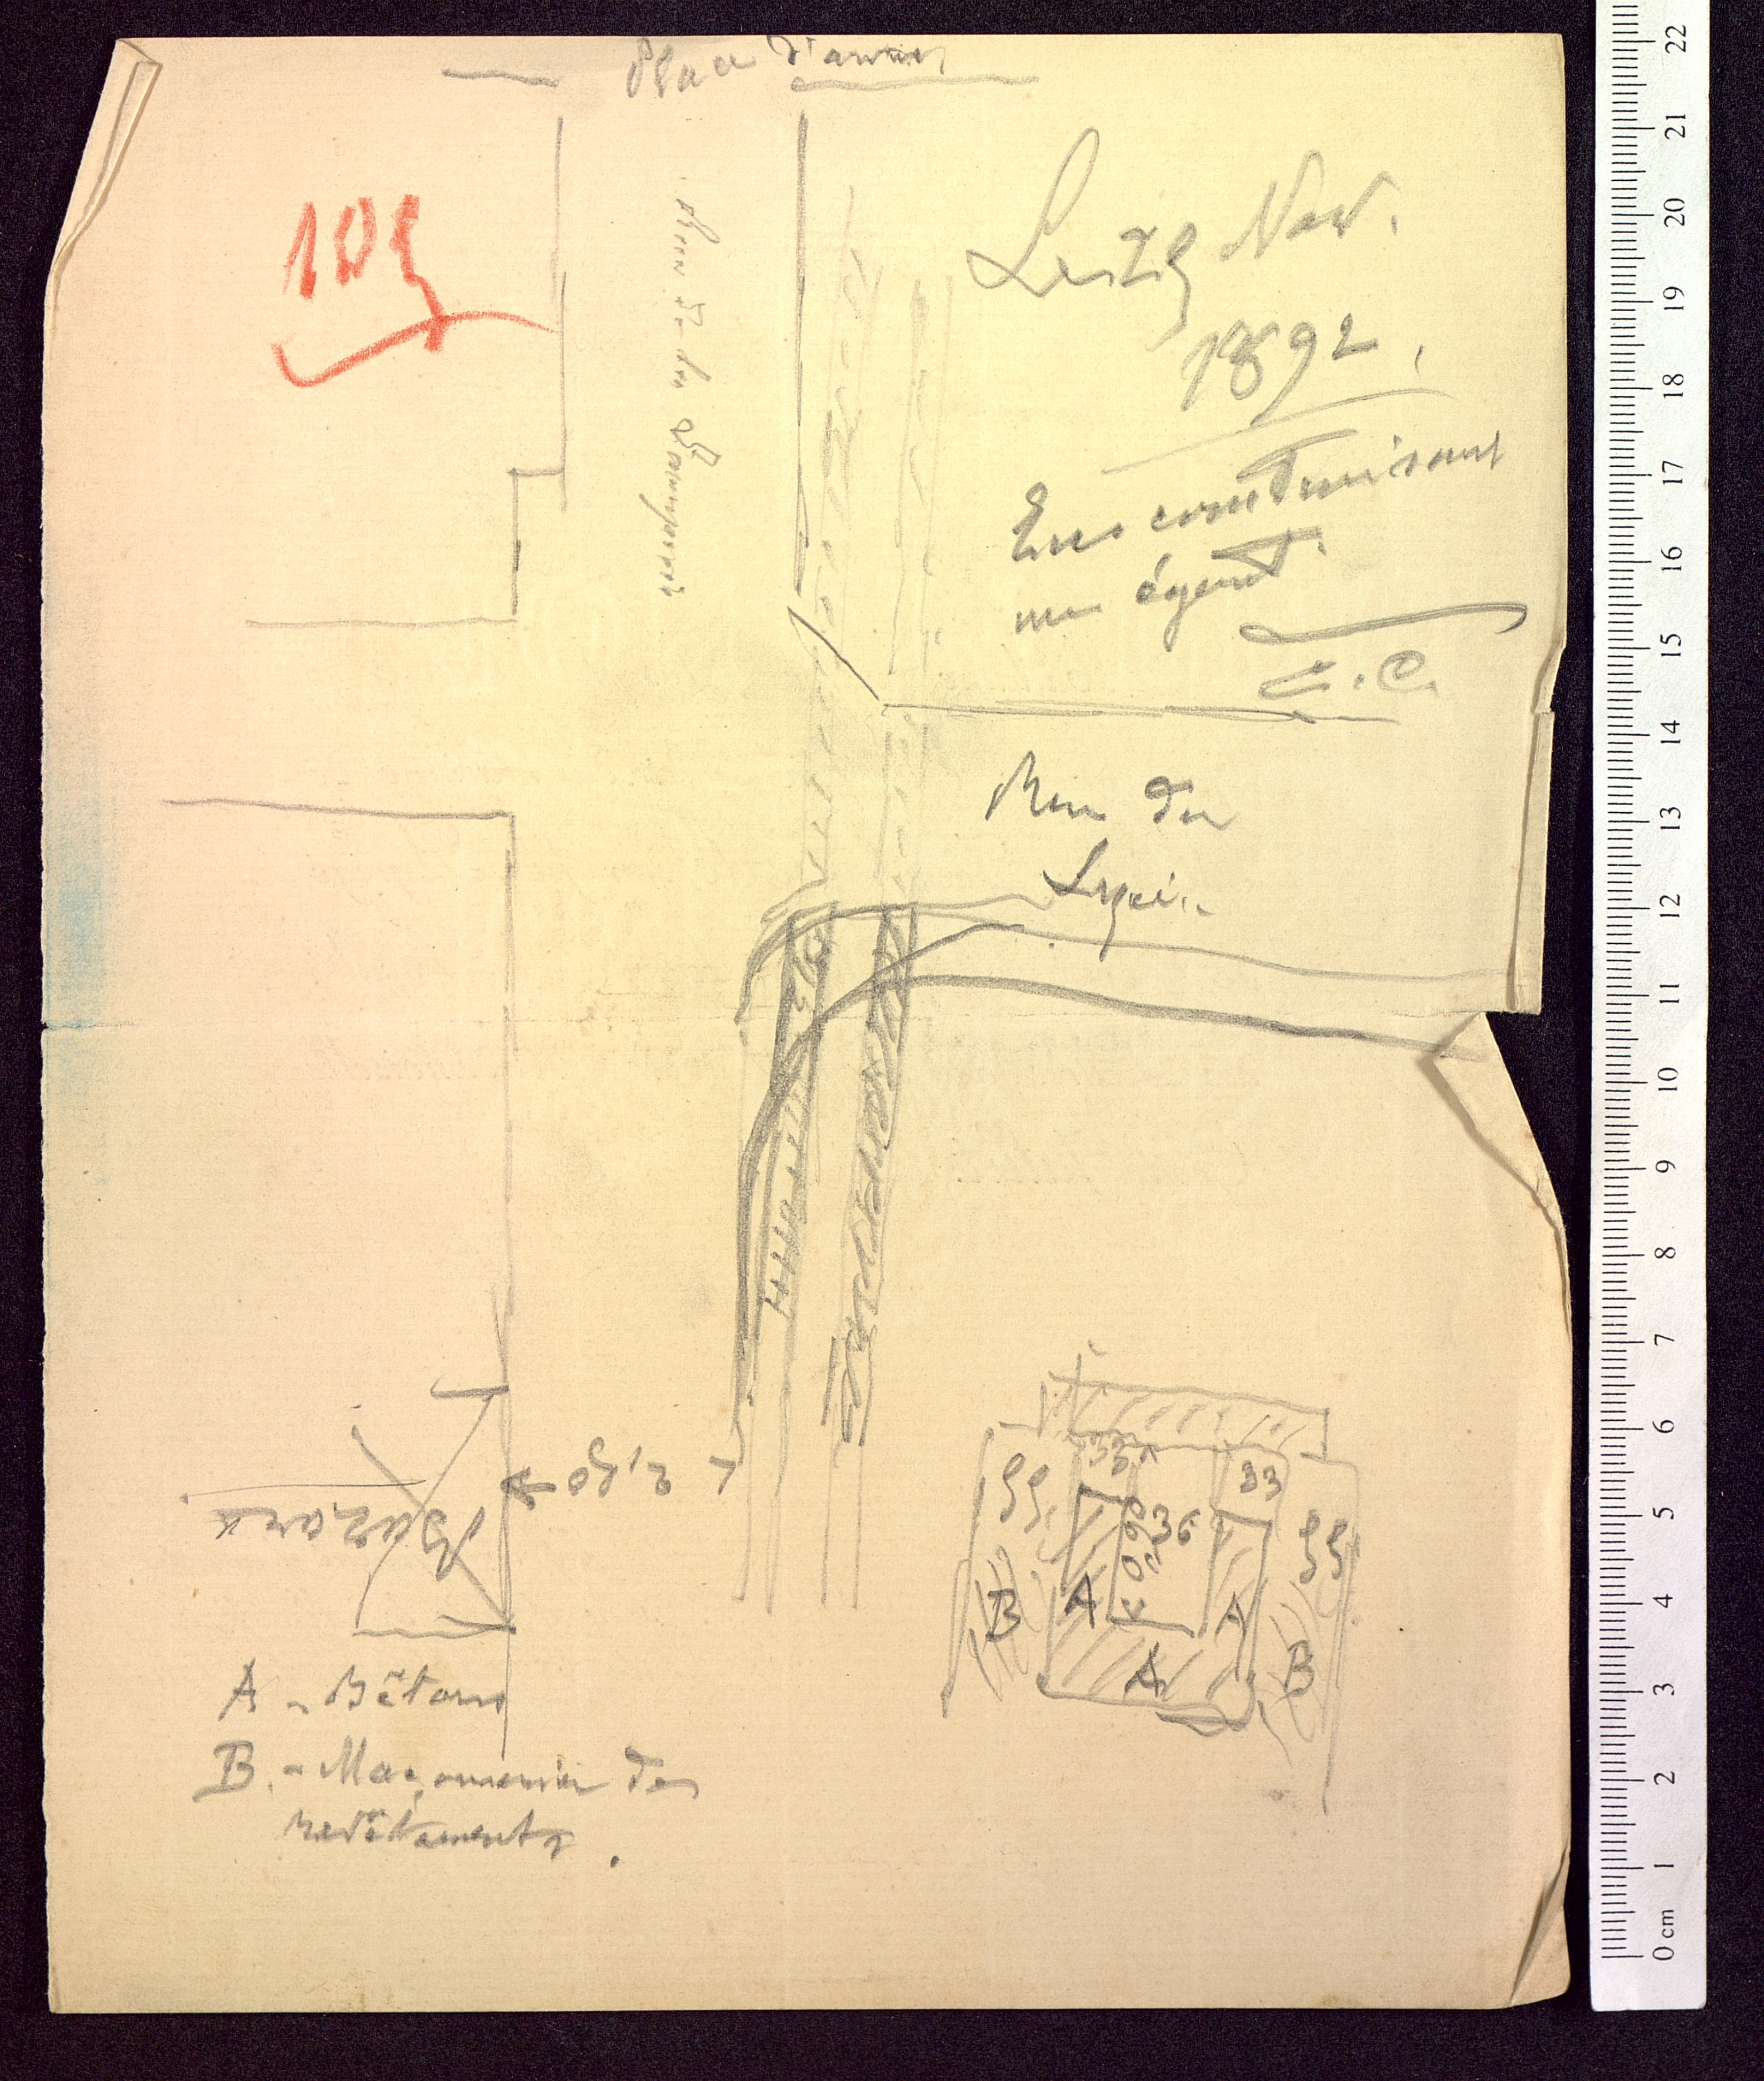 Place d'armes
105
Rue de la
Nov.
1892
En construisant
un égout
E.C.
Rue du
Lycée
2,50
Bazar
33
33
55
55
36
0,60
B
A
A
A
B
A - Béton
B. - Maçonnerie des
revêtements.
22
21
20
19
18
17
16
15
14
13
12
11
10
9
8
7
6
5
4
3
2
1
0 cm